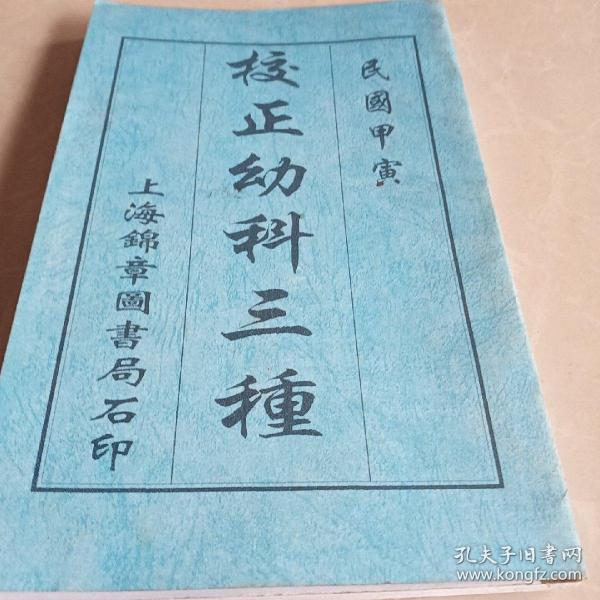 民國甲寅
校正幼科三種
上海錦章圖書局石印
孔夫子旧書网
www.kongfz.com